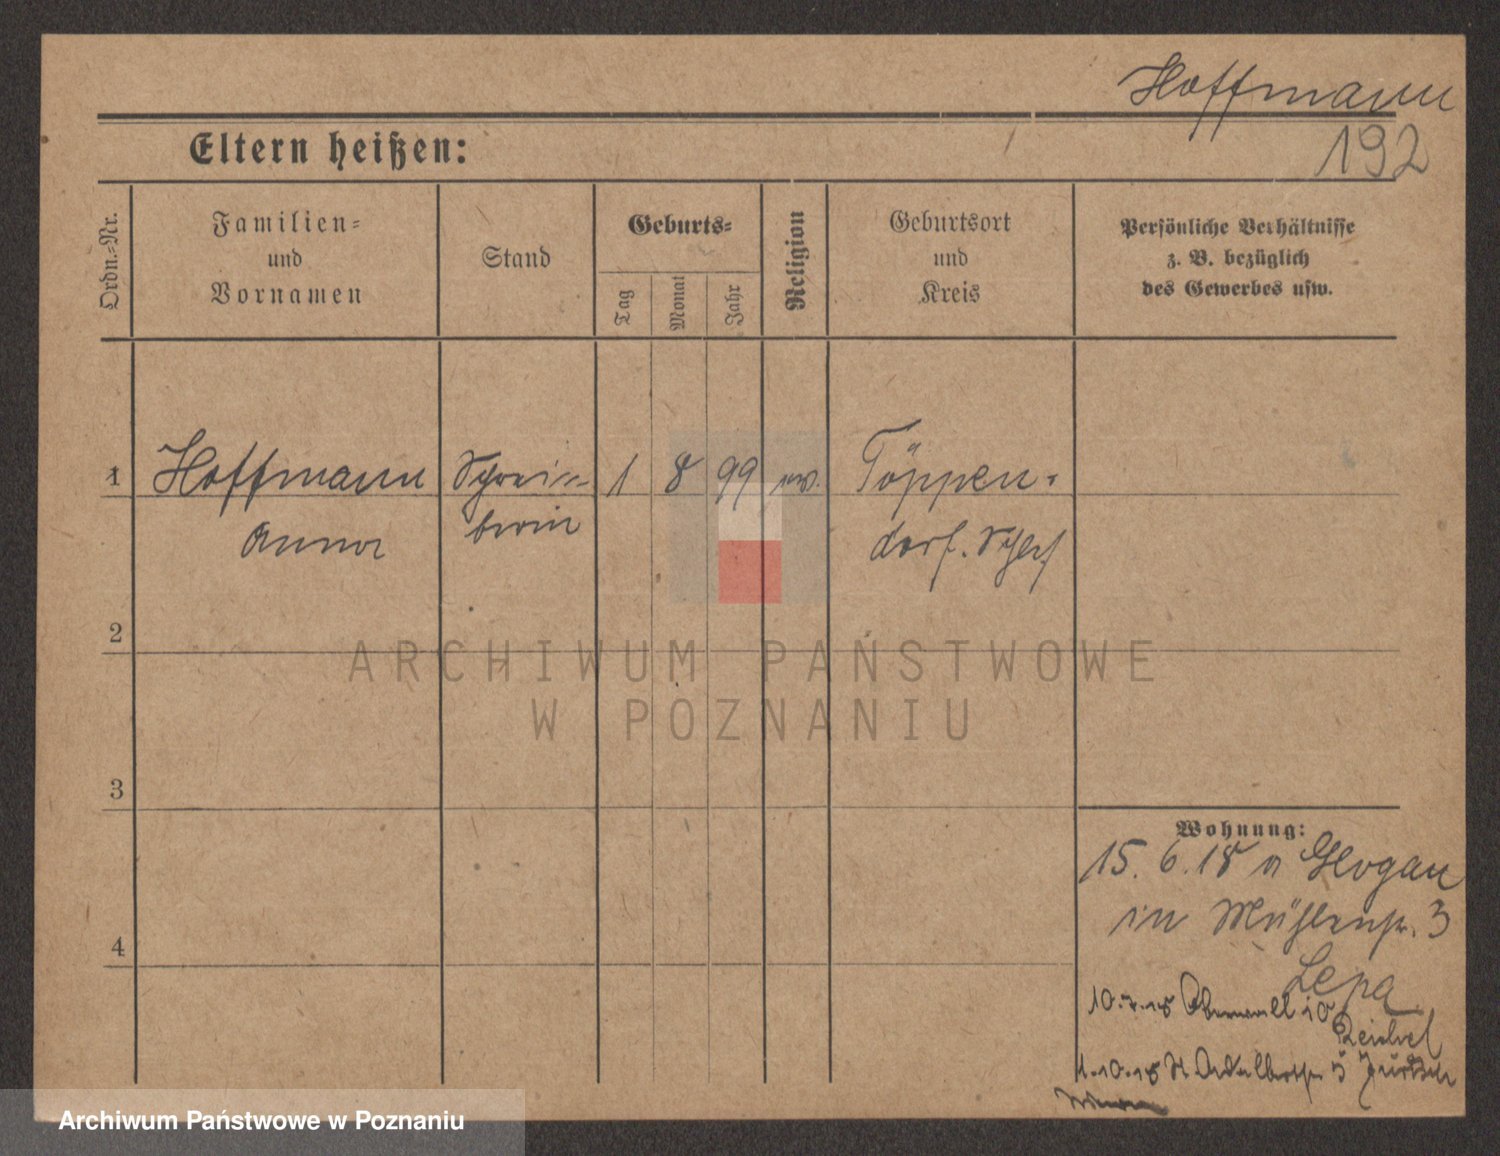 Hoffmann
192
Eltern heißen:
Ordn.-Nr.
Familien-
und
Vornamen
Stand
Geburts-
Tag
Monat
Jahr
Religion
Geburtsort
und
Kreis
Persönliche Verhältnisse
z. B. bezüglich
des Gewerbes usw.
1 Hoffmann Schrei- 1 8 99 ev. Töppen-
Anna berin dorf. Schles
2
3
4
ARCHIWUM PAŃSTWOWE
W POZNANIU
Wohnung:
15. 6. 18 v Glogau
in Mühlenstr. 3
Lepa
10.7.18 Oberwall 10
Reichel
1.10.18 St. Adalbertstr 5
Archiwum Państwowe w Poznaniu